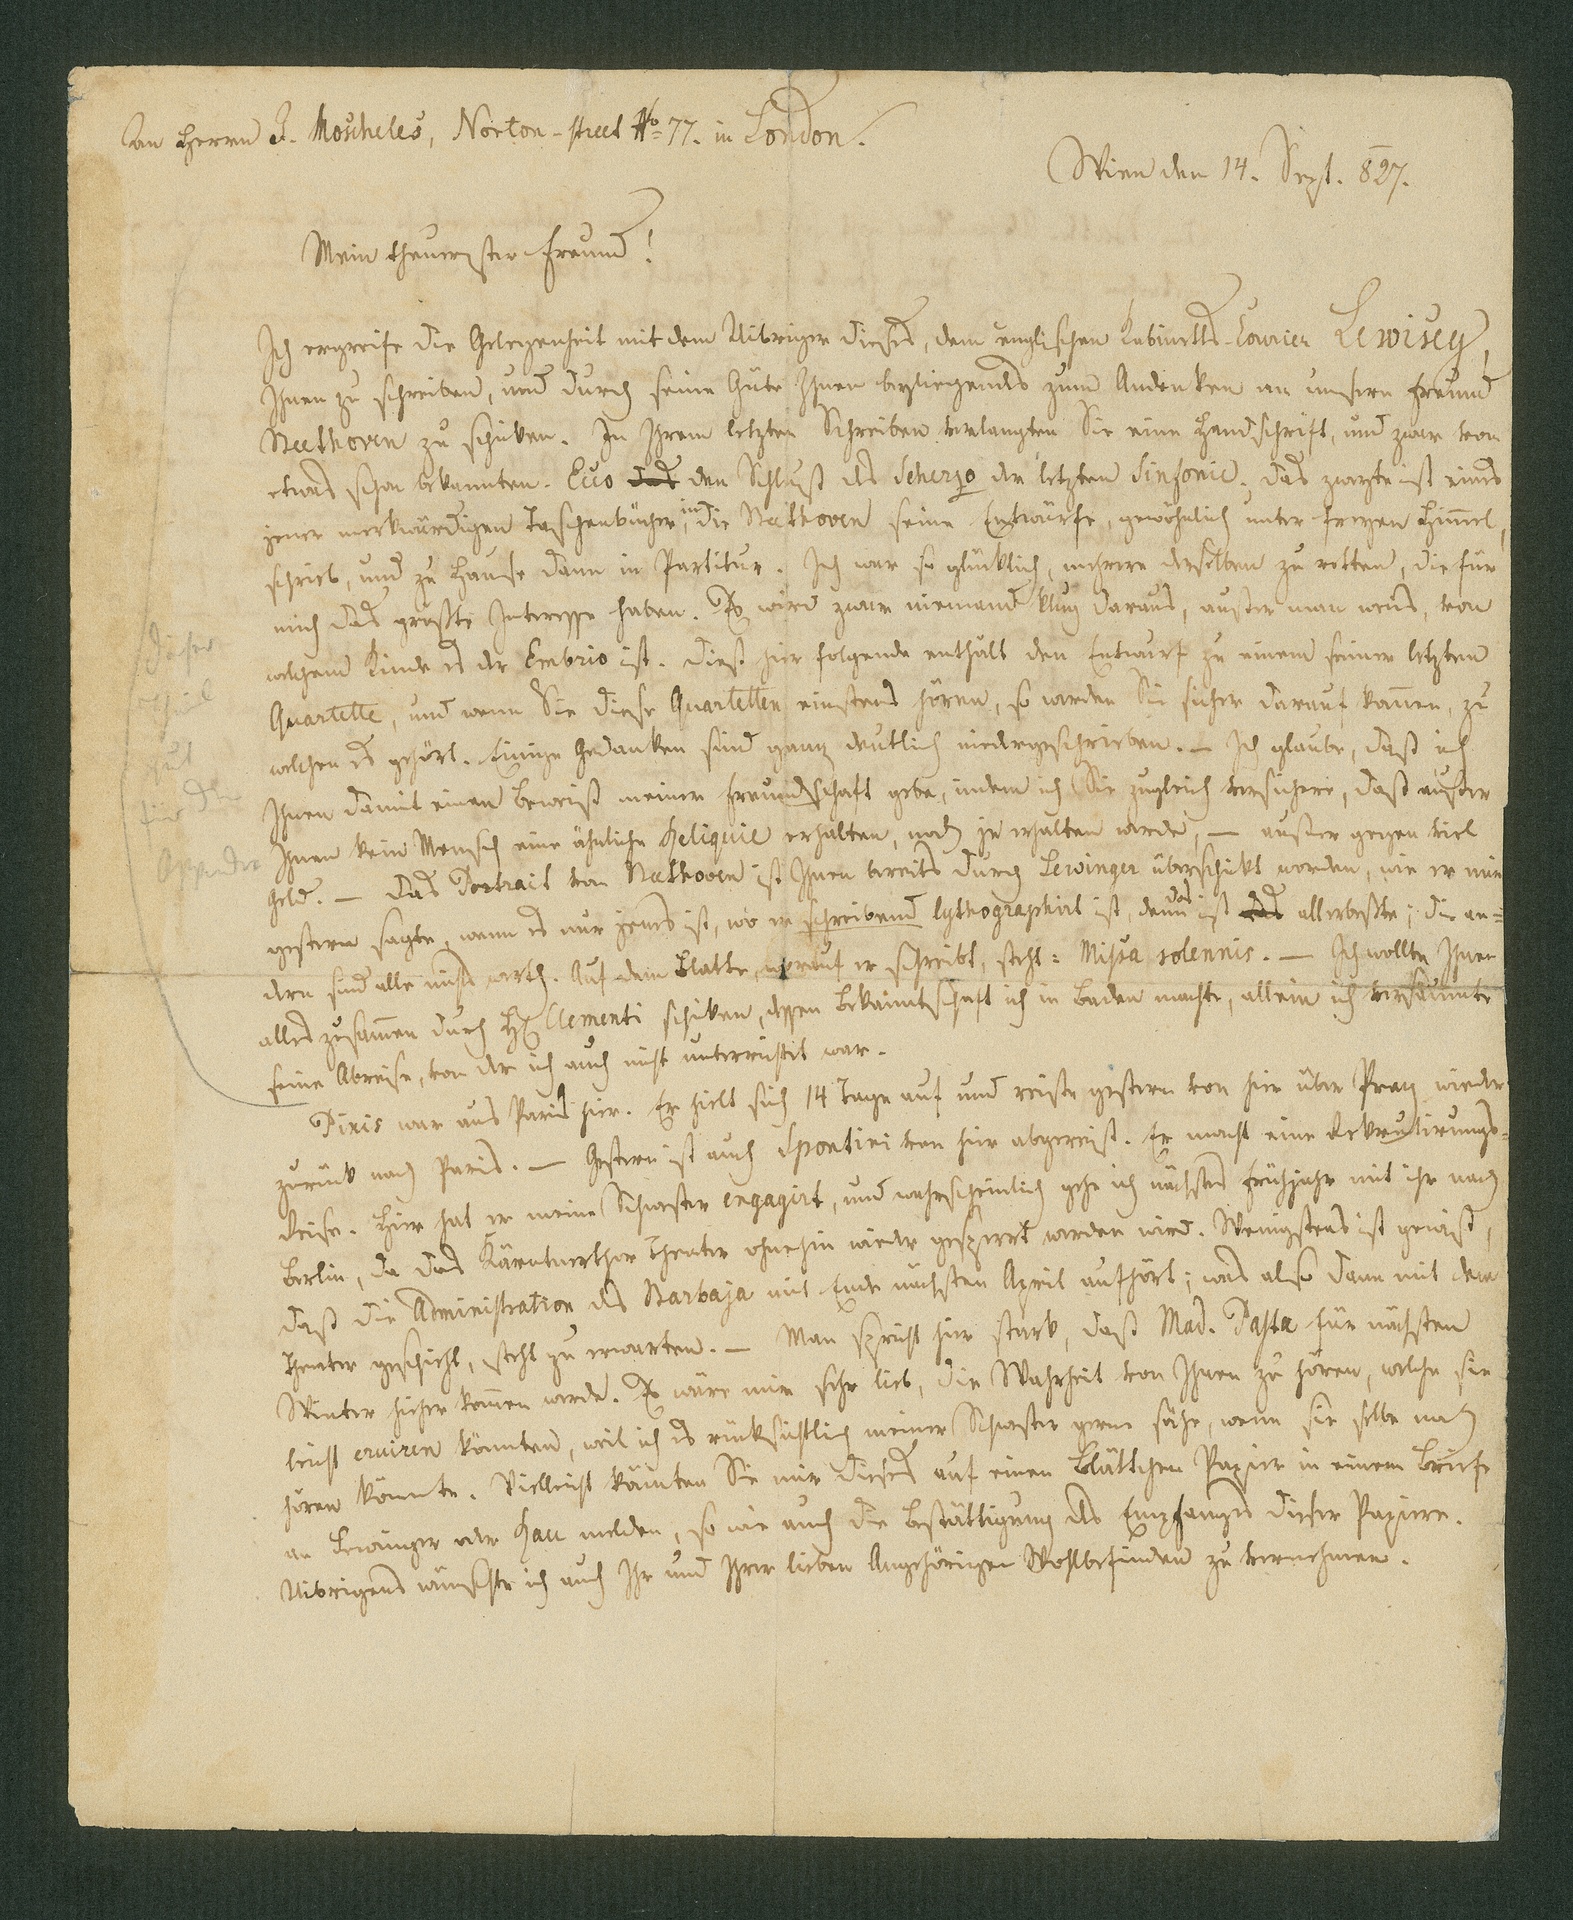 An Herrn I. Moscheles, Norton-street No 77. in London.
Wien den 14. Sept. 827.
Mein theuerster Freund!
Ich ergreife die Gelegenheit mit dem Uibringer dieses, dem englischen Kabinetts-Courier Lewisey,
Ihnen zu schreiben, und durch seine Güte Ihnen beyliegendes zum Andenken an unsern Freund
Beethoven zu schicken. In Ihrem letzten Schreiben verlangten Sie eine Handschrift, und zwar von
etwas schon bekannten. Ecco das den Schluß des Scherzo der letzten Sinfonie. Das zweyte ist eines
jener merkwürdigen Taschenbücher, in die Beethoven seine Entwürfe, gewöhnlich unter freyem Himmel,
schrieb, und zu Hause dann in Partitur. Ich war so glücklich, mehrere derselben zu retten, die für
mich das größte Interesse haben. Es wird zwar niemand klug daraus, außer man weis, von
welchem Kinde es der Embrio ist. Dieß hier folgende enthält den Entwurf zu einem seiner letzten
Quartette, und wenn Sie diese Quartetten einstens hören, so werden Sie sicher darauf kommen, zu
welchen es gehört. Einige Gedanken sind ganz deutlich niedergeschrieben. — Ich glaube, daß ich
Ihnen damit einen Beweiß meiner Freundschaft gebe, indem ich Sie zugleich versichere, daß außer
Ihnen kein Mensch eine ähnliche Reliquie erhalten, noch je erhalten werde, — außer gegen viel
Geld. — Das Portrait von Beethoven ist Ihnen bereits durch Lewinger überschickt worden, wie er mir
gestern sagte, wenn es nur jenes ist, wo er schreibend lythographirt ist, denn das ist das allerbeste; die an=
dern sind alle nichts werth. Auf dem Blatte, worauf er schreibt, steht: Missa solennis. — Ich wollte Ihnen
alles zusammen durch H. Clementi schicken, dessen Bekanntschaft ich in Baden machte, allein ich versäumte
seine Abreise, von der ich auch nicht unterrichtet war.
Pixis war aus Paris hier. Er hielt sich 14 Tage auf und reiste gestern von hier über Prag wieder
zurück nach Paris. — Gestern ist auch Spontini von hier abgereist. Er macht eine Rekrutirungs-
Reise. Hier hat er meine Schwester engagirt, und wahrscheinlich gehe ich nächstes Frühjahr mit ihr nach
Berlin, da das Kärntnerthor Theater ohnehin wieder gesperrt werden wird. Wenigstens ist gewiß,
daß die Administration des Barbaja mit Ende nächsten April aufhört; was also dann mit dem
Theater geschieht, steht zu erwarten. — Man spricht hier stark, daß Mad. Pasta für nächsten
Winter hieher kommen werde. Es wäre mir sehr lieb, die Wahrheit von Ihnen zu hören, welche sie
leicht eruiren könnten, weil ich es rücksichtlich meiner Schwester gerne sähe, wenn sie selbe noch
hören könnte. Vielleicht könnten Sie mir dieses auf einem Blättchen Papier in einem Briefe
an Lewinger oder Hau melden, so wie auch die Bestättigung des Empfanges dieser Papiere.
Uibrigens wünschte ich auch Ihr und Ihrer lieben Angehörigen Wohlbefinden zu vernehmen.
dieser
Theil
gut
für den